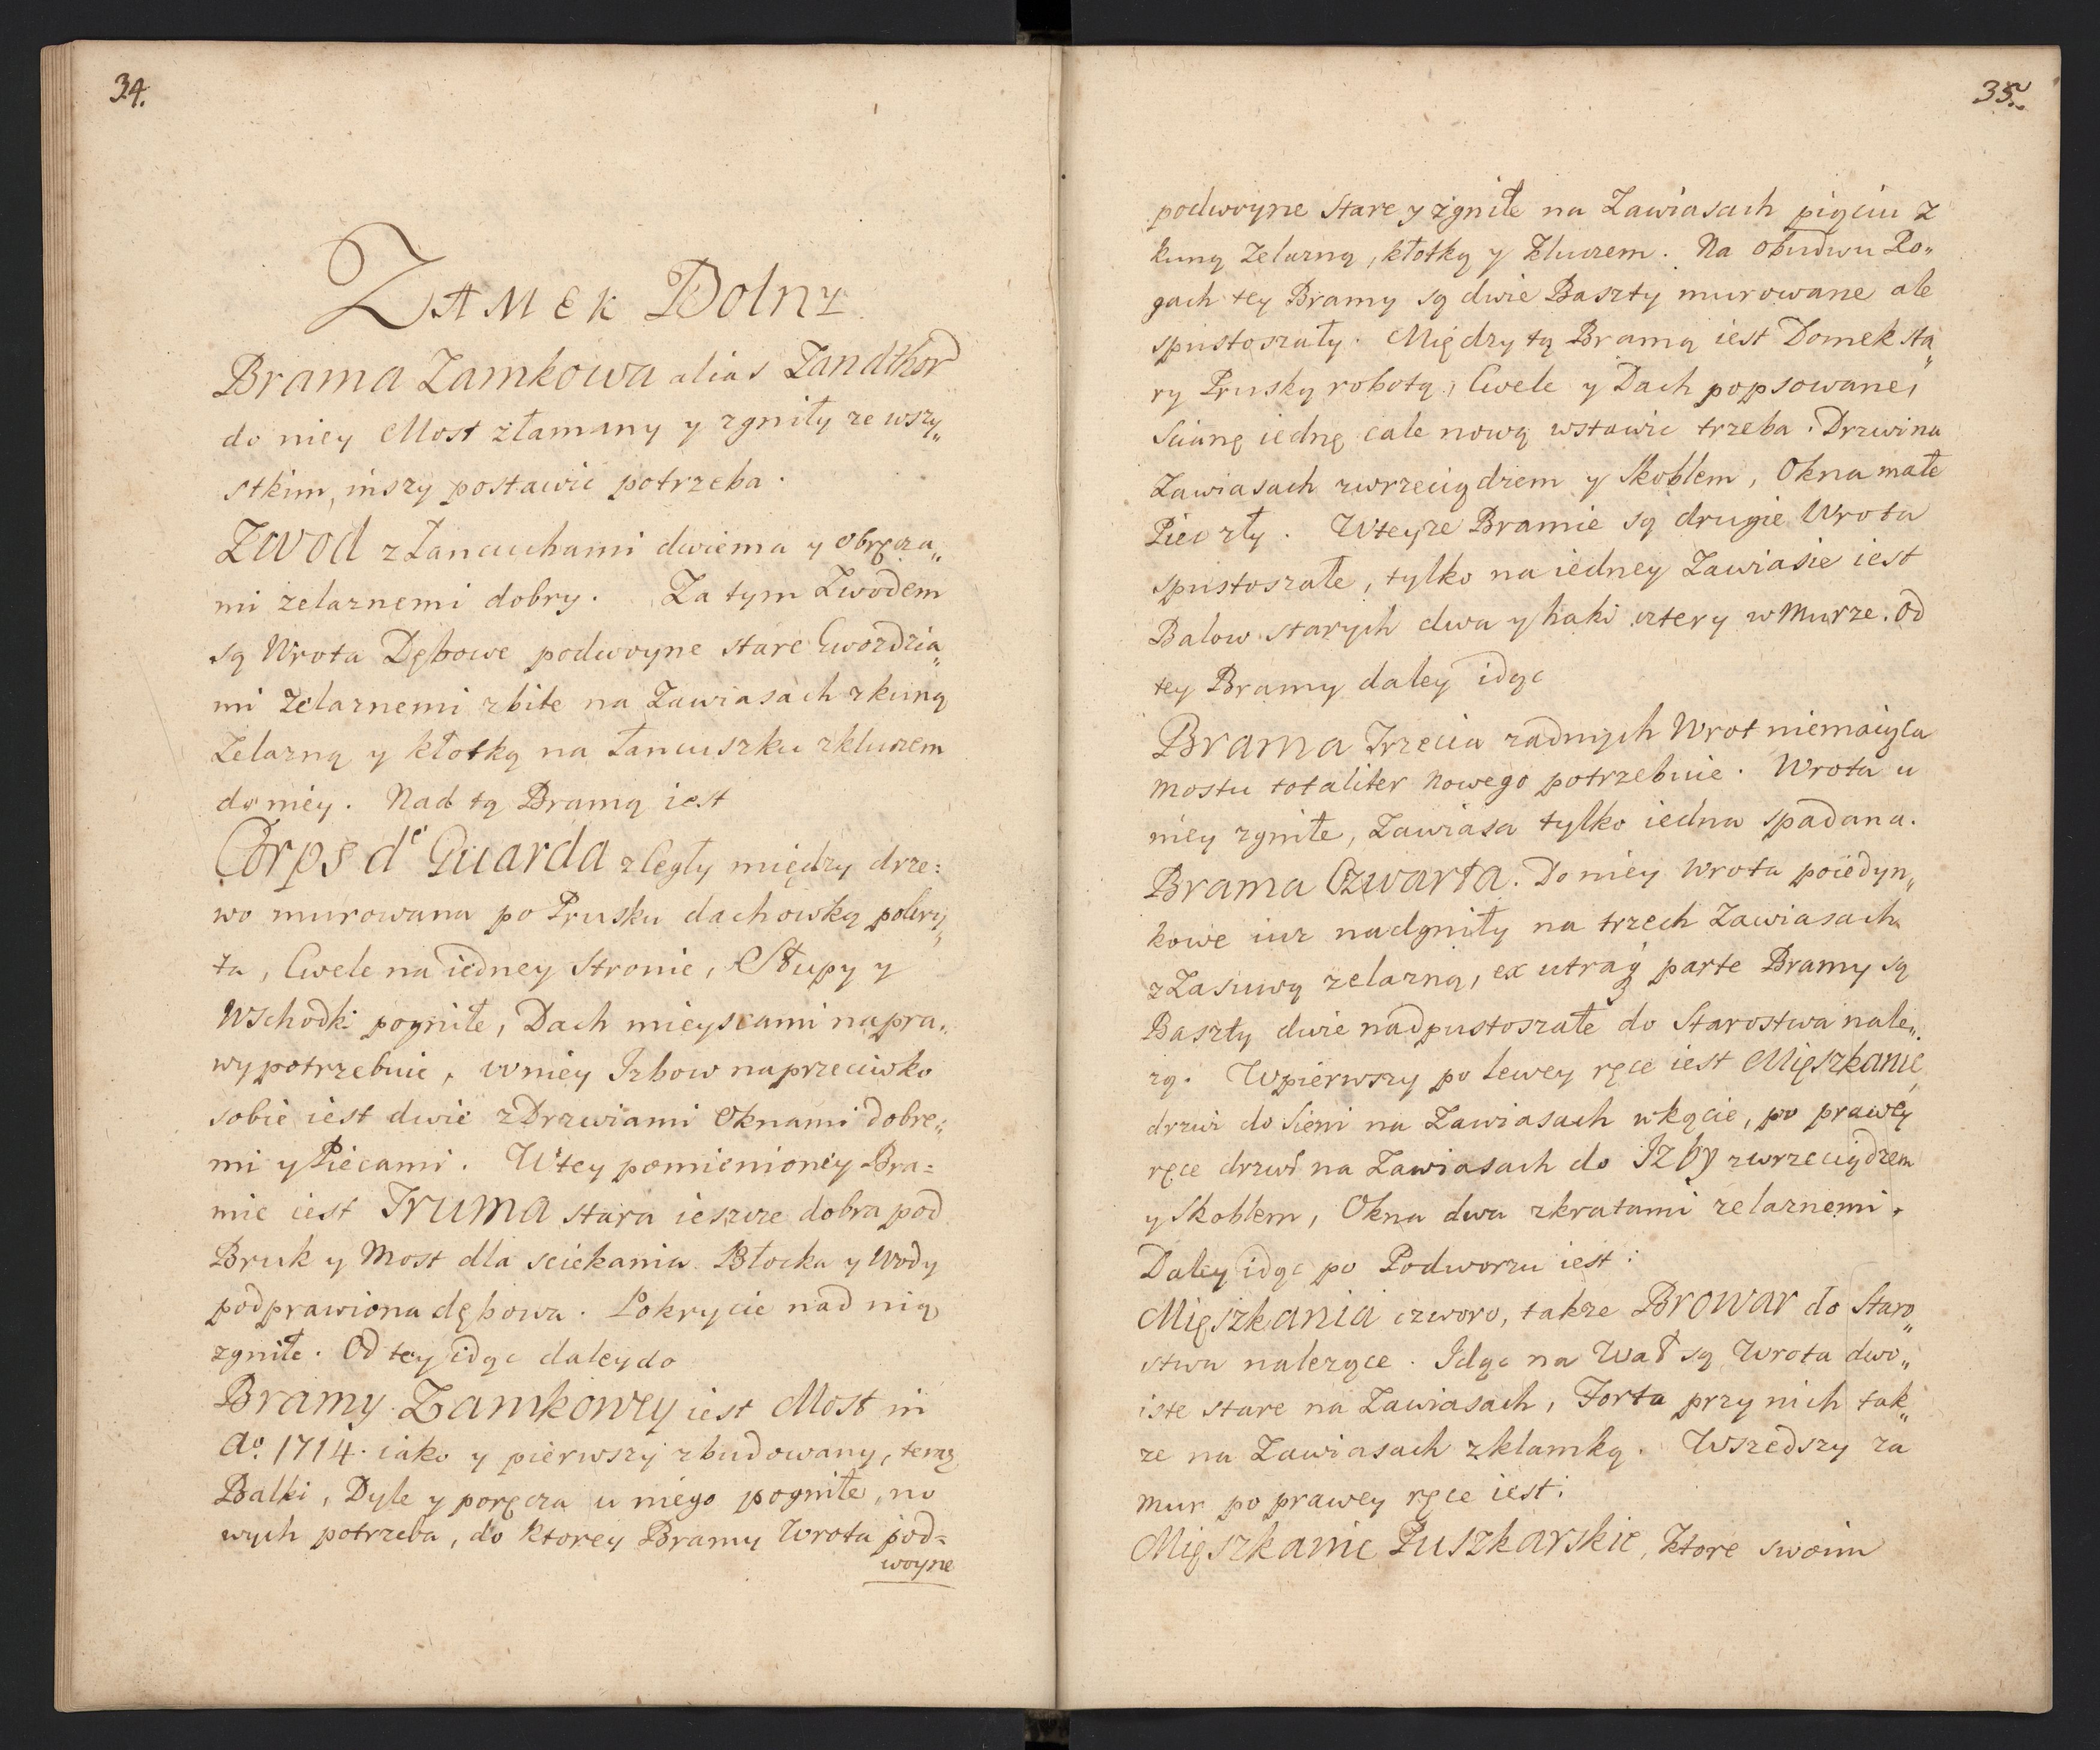 34.
Zamek Dolny
Brama Zamkowa alias Zandthor
do niey Most złamany y zgniły ze wszy„
stkim, inszy postawić potrzeba.
Zwod z Łancuchami dwiema y obręcza„
mi zelaznemi dobry. Za tym Zwodem
są Wrota Dębowe podwoyne stare Gwozdzia„
mi Zelaznemi zbite na Zawiasach z kuną
Zelazną y kłotką na Łancuszku z kluczem
do niey. Nad tą Bramą iest
Corps de Guarda zległy między drze:
wo murowana po Prusku dachowką pokry„
ta, Cwele na iedney Stronie, Słupy y
Wschodki pogniłe, Dach mieyscami napra„
wy potrzebuie, w niey Izbow naprzeciwko
sobie iest dwie z Drzwiami Oknami dobre„
mi y Piecami. W tey pomienioney Bra=
mie iest Truma stara ieszcze dobra pod
Bruk y Most dla sciekania Błocka y Wody
podprawiona dębowa. Pokrycie nad nią
zgniłe. Od tey idąc daley do
Bramy Zamkowey iest Most in
Ao. 1714. iako y pierwszy zbudowany, teraz
Balki, Dyle y poręcza u niego pogniłe, no
wych potrzeba, do ktorey Bramy Wrota pod=
woyne
35.
podwoyne stare y zgniłe na Zawiasach pięciu z
kuną Zelazną, kłotką y Kluczem. Na obudwu Ro„
gach tey Bramy są dwie Baszty murowane ale
spustoszały. Między tą Bramą iest Domek sta„
ry Pruską robotą, Cwele y Dach popsowane,
Scianę iednę cale nową wstawić trzeba. Drzwi na
Zawiasach z wrzeciądzem y Skoblem, Okna małe
Piec zły. W teyze Bramie są drugie Wrota
spustoszałe, tylko na iedney Zawiasie iest
Balow starych dwa y haki cztery w Murze. Od
tey Bramy daley idąc
Brama Trzecia zadnych Wrot niemaiąca
Mostu totaliter nowego potrzebuie. Wrota u
niey zgniłe, Zawiasa tylko iedna spadana.
Brama Czwarta. Do niey Wrota poiedyn„
kowe iuz nadgniły na trzech Zawiasach
z Zasuwą zelazną, ex utraq parte Bramy są
Baszty dwie nadpustoszałe do Starostwa nale„
zą. W pierwszy po lewey ręce iest Mięszkanie,
drzwi do Sieni na Zawiasach w kącie, po prawey
ręce drzwi na Zawiasach do Izby z wrzeciądzem
y Skoblem, Okna dwa z kratami zelaznemi.
Daley idąc po Podworzu iest:
Mięszkania czworo, takze Browar do Staro„
stwa nalezące. Idąc na Wał są Wrota dwo„
iste stare na Zawiasach, Forta przy nich tak„
ze na Zawiasach z klamką. Wszedszy za
mur po prawey ręce iest:
Mięszkanie Puszkarskie, Ktore swoim